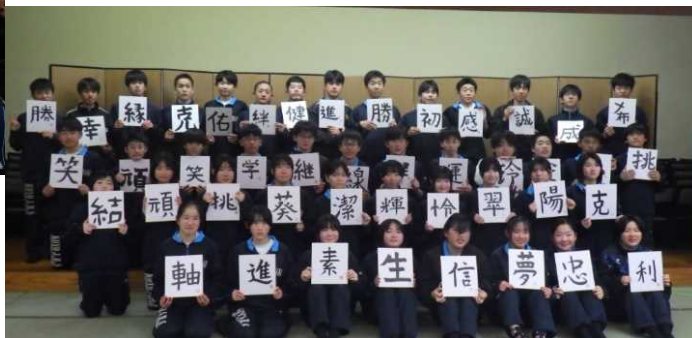 勝 幸 縁 克 佑 絆 健 進 勝 初 感 誠 成 希
笑 頑 笑 学 継 線 運 挑
結 頑 挑 葵 潔 輝 怜 翠 陽 克
軸 進 素 生 信 夢 忠 利